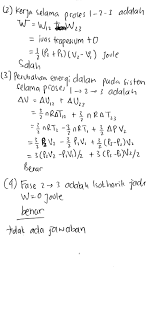 (2) kerja selama proses 1-2-3 adalah
W = W₁₂ + W₂₃
= luas trapesium + 0
= ½ (P₁+P₂)(V₂-V₁) Joule
Salah
(3) Perubahan energi dalam pada sistem
selama proses 1→2→3 adalah
ΔU = ΔU₁₂ + ΔU₂₃
= 3/2 nRΔT₁₂ + 3/2 nRT₂₃
= 3/2 nRT₂ - 3/2 nRT₁ + 3/2 ΔPV₂
= 3/2 P₂V₂ - 3/2 P₁V₁ + 3/2 (P₃-P₂)V₂
= 3(P₂V₂-P₁V₁)/2 + 3(P₃-P₂)V₂/2
Benar
(4) Fase 2→3 adalah isokhorik jadi
W=0 Joule
benar
tidak ada jawaban